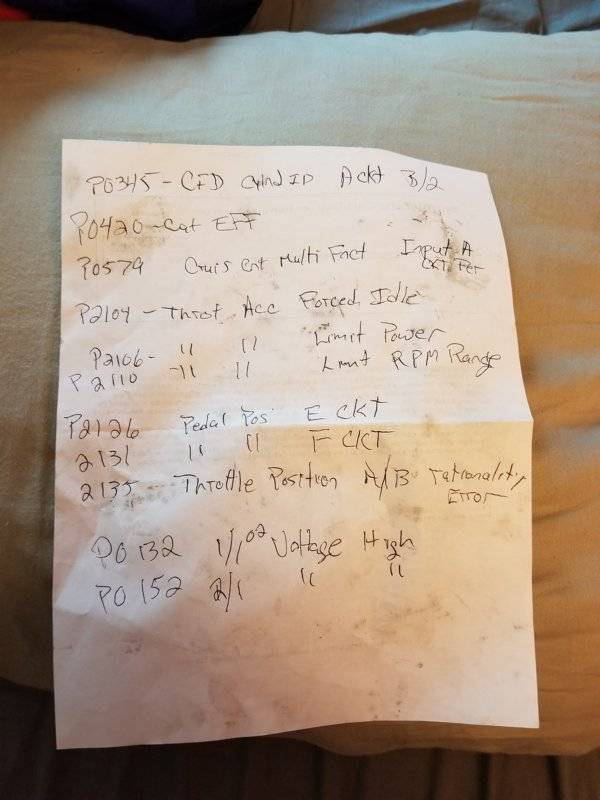 P0345 - CFD Cylind ID A ckt B/2
P0420 - Cat EFF
P0579 Cruis Cnt Multi Fnct Input A
CKT Per
P2104 - Throt Acc Forced Idle
P2106 - " " Limit Power
P2110 - " " Limit RPM Range
P2126 Pedal Pos E CKT
2131 " " F CKT
2135 - Throttle Position A/B rationality
Error
P0132 1/1 O2 Voltage High
P0152 2/1 " "